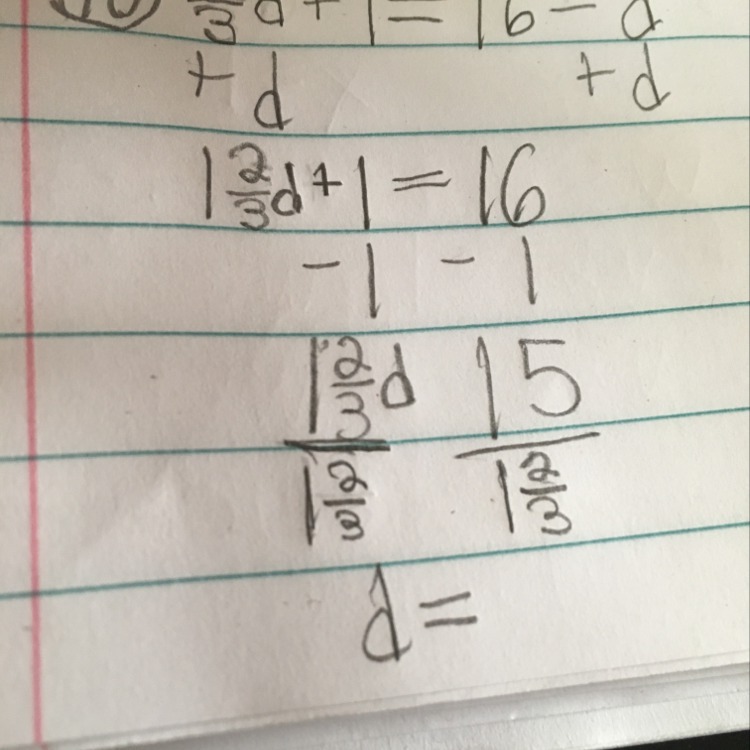 2/3d + 1 = 16 - d
+ d + d
1 2/3d + 1 = 16
- 1 - 1
1 2/3d 15
1 2/3 1 2/3
d =